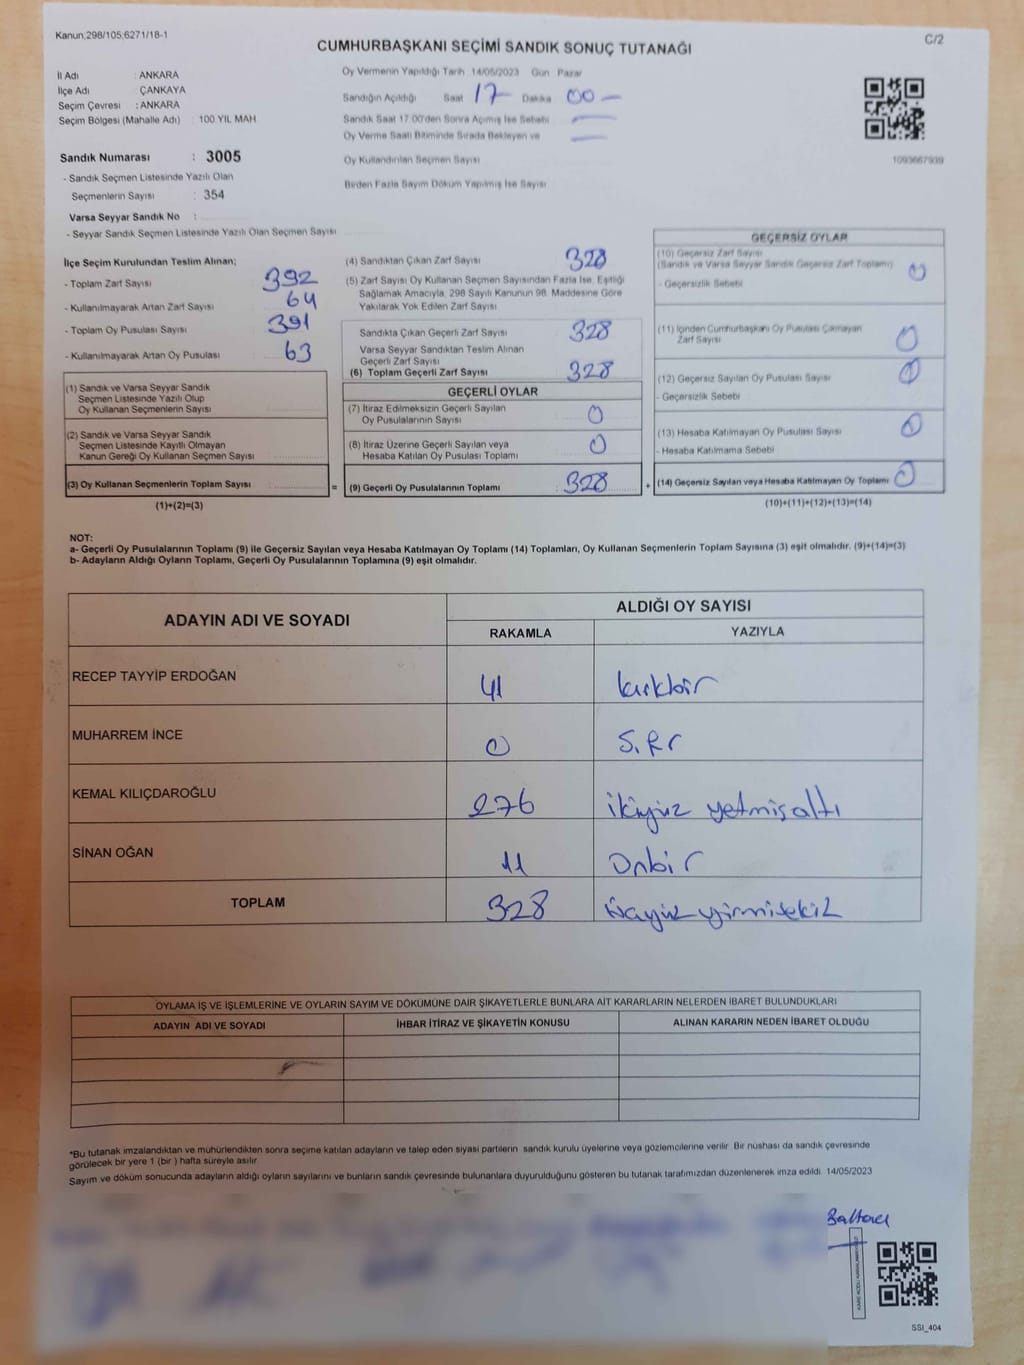 Kanun;298/105;6271/18-1
C/2
CUMHURBAŞKANI SEÇİMİ SANDIK SONUÇ TUTANAĞI
İl Adı : ANKARA
İlçe Adı : ÇANKAYA
Seçim Çevresi : ANKARA
Seçim Bölgesi (Mahalle Adı) : 100 YIL MAH
Oy Vermenin Yapıldığı Tarih 14/05/2023 Gün Pazar
Sandığın Açıldığı Saat 17 Dakika 00 —
Sandık Saat 17:00'den Sonra Açılmış İse Sebebi —
Oy Verme Saati Bitiminde Sırada Bekleyen ve —
Oy Kullandırılan Seçmen Sayısı
Birden Fazla Sayım Döküm Yapılmış İse Sayısı
1093667939
Sandık Numarası : 3005
- Sandık Seçmen Listesinde Yazılı Olan
Seçmenlerin Sayısı : 354
Varsa Seyyar Sandık No :
- Seyyar Sandık Seçmen Listesinde Yazılı Olan Seçmen Sayısı
İlçe Seçim Kurulundan Teslim Alınan;
- Toplam Zarf Sayısı 392
- Kullanılmayarak Artan Zarf Sayısı 64
- Toplam Oy Pusulası Sayısı 391
- Kullanılmayarak Artan Oy Pusulası 63
(1) Sandık ve Varsa Seyyar Sandık
Seçmen Listesinde Yazılı Olup
Oy Kullanan Seçmenlerin Sayısı
(2) Sandık ve Varsa Seyyar Sandık
Seçmen Listesinde Kayıtlı Olmayan
Kanun Gereği Oy Kullanan Seçmen Sayısı
(3) Oy Kullanan Seçmenlerin Toplam Sayısı =
(1)+(2)=(3)
(4) Sandıktan Çıkan Zarf Sayısı 328
(5) Zarf Sayısı Oy Kullanan Seçmen Sayısından Fazla İse, Eşitliği
Sağlamak Amacıyla, 298 Sayılı Kanunun 98. Maddesine Göre
Yakılarak Yok Edilen Zarf Sayısı
Sandıkta Çıkan Geçerli Zarf Sayısı 328
Varsa Seyyar Sandıktan Teslim Alınan
Geçerli Zarf Sayısı
(6) Toplam Geçerli Zarf Sayısı 328
GEÇERLİ OYLAR
(7) İtiraz Edilmeksizin Geçerli Sayılan
Oy Pusulalarının Sayısı 0
(8) İtiraz Üzerine Geçerli Sayılan veya
Hesaba Katılan Oy Pusulası Toplamı 0
(9) Geçerli Oy Pusulalarının Toplamı 328 +
GEÇERSİZ OYLAR
(10) Geçersiz Zarf Sayısı
(Sandık ve Varsa Seyyar Sandık Geçersiz Zarf Toplamı) 0
- Geçersizlik Sebebi
(11) İçinden Cumhurbaşkanı Oy Pusulası Çıkmayan
Zarf Sayısı 0
(12) Geçersiz Sayılan Oy Pusulası Sayısı 0
- Geçersizlik Sebebi
(13) Hesaba Katılmayan Oy Pusulası Sayısı 0
- Hesaba Katılmama Sebebi
(14) Geçersiz Sayılan veya Hesaba Katılmayan Oy Toplamı 0
(10)+(11)+(12)+(13)=(14)
NOT:
a- Geçerli Oy Pusulalarının Toplamı (9) ile Geçersiz Sayılan veya Hesaba Katılmayan Oy Toplamı (14) Toplamları, Oy Kullanan Seçmenlerin Toplam Sayısına (3) eşit olmalıdır. (9)+(14)=(3)
b- Adayların Aldığı Oyların Toplamı, Geçerli Oy Pusulalarının Toplamına (9) eşit olmalıdır.
ADAYIN ADI VE SOYADI
ALDIĞI OY SAYISI
RAKAMLA YAZIYLA
RECEP TAYYİP ERDOĞAN 41 kırkbir
MUHARREM İNCE 0 Sıfır
KEMAL KILIÇDAROĞLU 276 ikiyüz yetmişaltı
SİNAN OĞAN 11 Onbir
TOPLAM 328 üçyüz yirmisekiz
OYLAMA İŞ VE İŞLEMLERİNE VE OYLARIN SAYIM VE DÖKÜMÜNE DAİR ŞİKAYETLERLE BUNLARA AİT KARARLARIN NELERDEN İBARET BULUNDUKLARI
ADAYIN ADI VE SOYADI İHBAR İTİRAZ VE ŞİKAYETİN KONUSU ALINAN KARARIN NEDEN İBARET OLDUĞU
*Bu tutanak imzalandıktan ve mühürlendikten sonra seçime katılan adayların ve talep eden siyasi partilerin sandık kurulu üyelerine veya gözlemcilerine verilir. Bir nüshası da sandık çevresinde
görülecek bir yere 1 (bir ) hafta süreyle asılır.
Sayım ve döküm sonucunda adayların aldığı oyların sayılarını ve bunların sandık çevresinde bulunanlara duyurulduğunu gösteren bu tutanak tarafımızdan düzenlenerek imza edildi. 14/05/2023
SSI_404